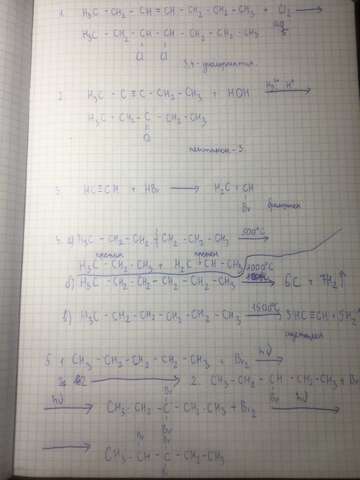 1. H₃C - CH₂ - CH = CH - CH₂ - CH₂ - CH₂ - CH₃ + Cl₂ ⟶
H₃C - CH₂ - CH - CH - CH₂ - CH₂ - CH₂ - CH₃
Cl Cl
2. H₃C - C ≡ C - CH₂ - CH₃ + HOH ⟶
H₃C - CH₂ - C - CH₂ - CH₃
O
пентанон-3
3. HC ≡ CH + HBr ⟶ H₂C = CH
Br
а) H₃C - CH₂ - CH₂ - CH₂ - CH₂ - CH₃ 500°C
H₃C - CH₂ - CH₃ + H₂C = CH - CH₃
б) H₃C - CH₂ - CH₂ - CH₂ - CH₂ - CH₃ 1000°C ⟶ 6C + 7H₂↑
в) H₃C - CH₂ - CH₂ - CH₂ - CH₂ - CH₃ 1500°C ⟶ 3HC ≡ CH +
5. 1 CH₃ - CH₂ - CH₂ - CH₂ - CH₃ + Br₂ hν ⟶
⟶ 2. CH₃ - CH₂ - CH - CH₂ - CH₃ + Br
Br
hν ⟶ CH₃ - CH₂ - C - CH₂ - CH₃ + Br₂ hν ⟶
Br
Br Br
⟶ CH₃ - CH - C - CH₂ - CH₃
Br